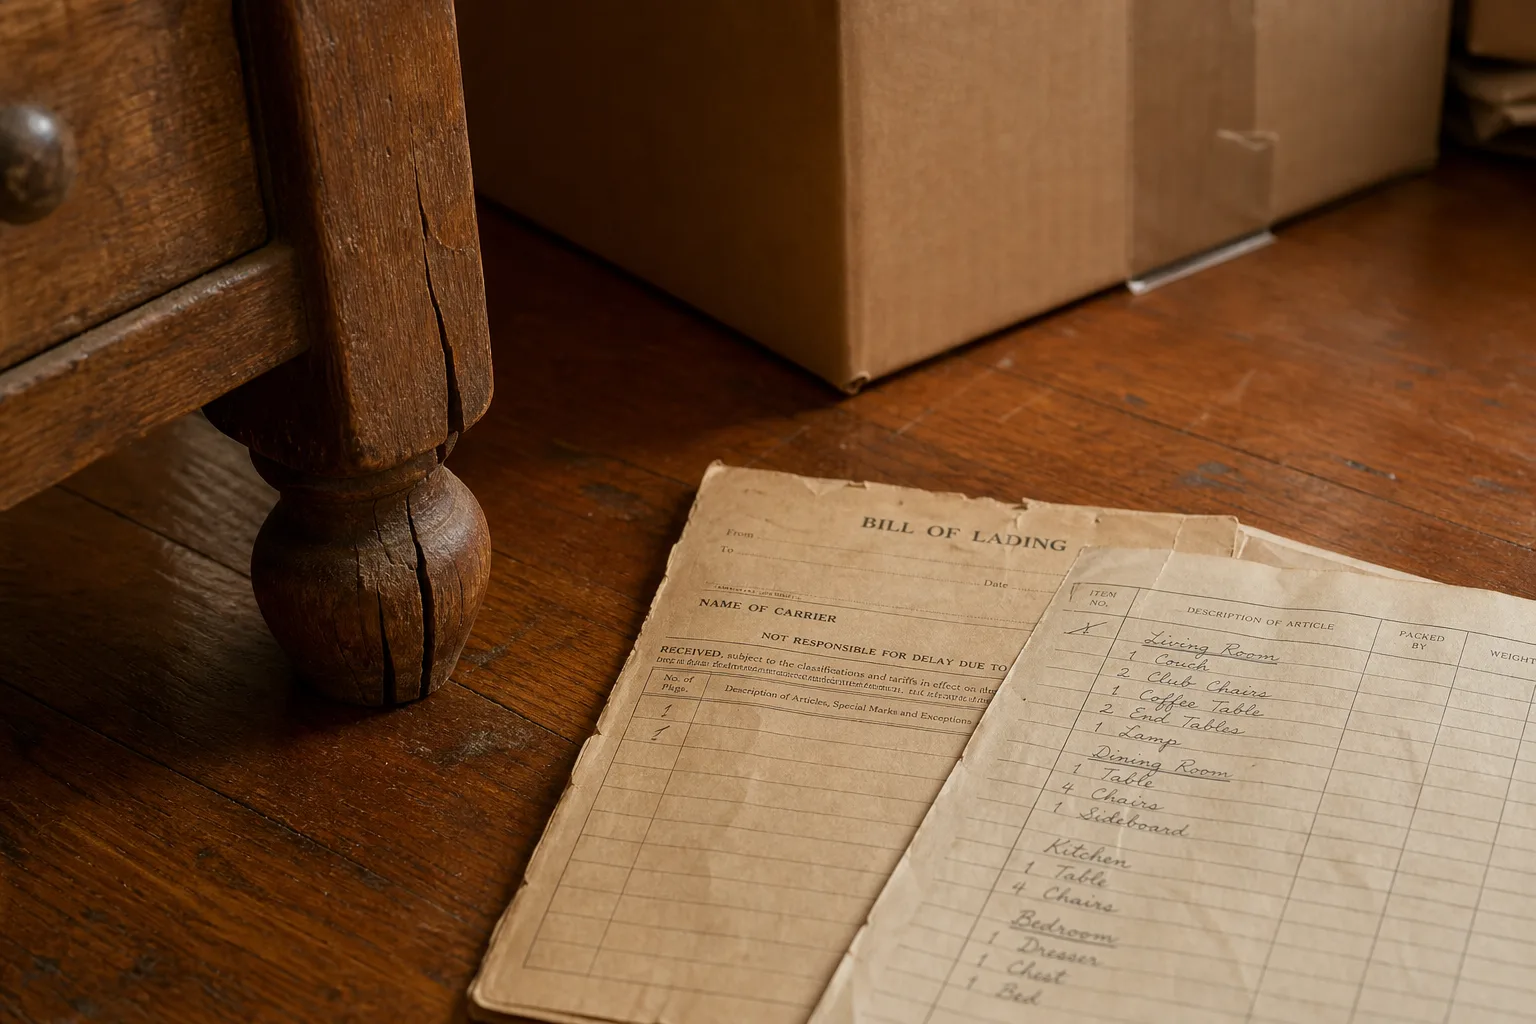 BILL OF LADING
From
To
Date
NAME OF CARRIER
NOT RESPONSIBLE FOR DELAY DUE TO
RECEIVED, subject to the classifications and tariffs in effect on
No. of Pkgs.
Description of Articles, Special Marks and Exceptions
1
1
ITEM NO.
DESCRIPTION OF ARTICLE
PACKED BY
WEIGHT
Living Room
1 Couch
2 Club Chairs
1 Coffee Table
2 End Tables
1 Lamp
Dining Room
1 Table
4 Chairs
1 Sideboard
Kitchen
1 Table
4 Chairs
Bedroom
1 Dresser
1 Chest
1 Bed